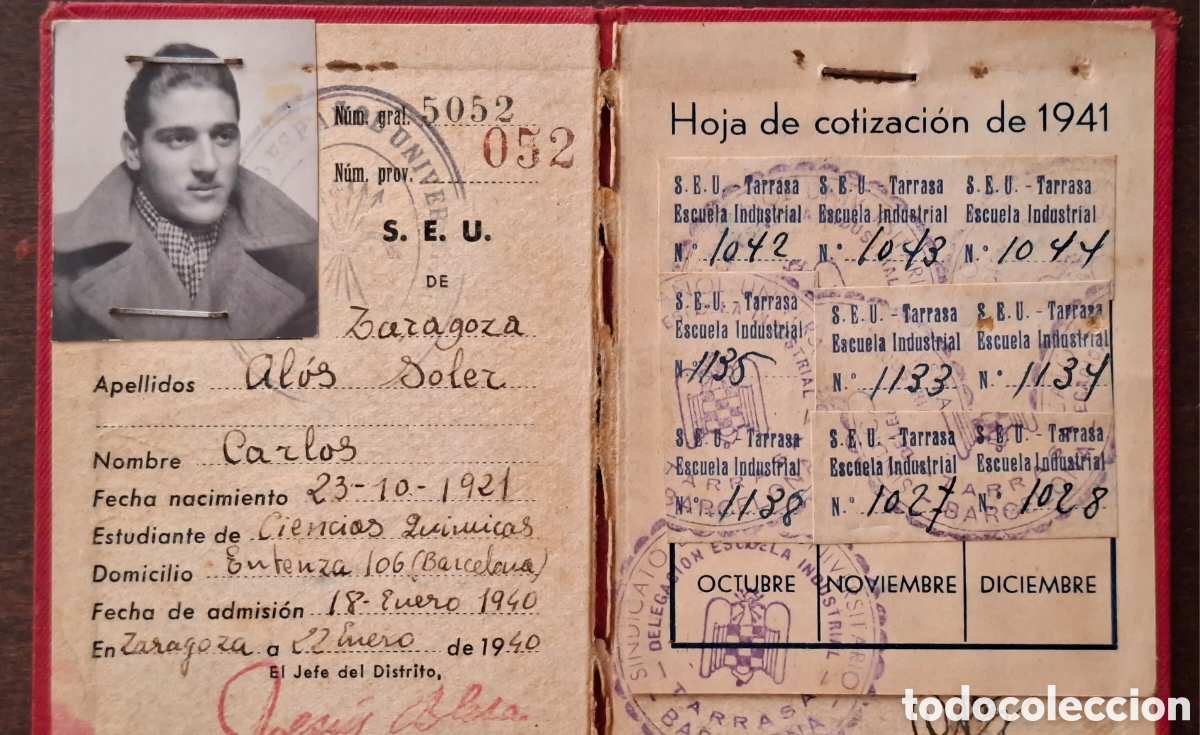 Núm. gral. 5052
052
Núm. prov.
S. E. U.
DE
Zaragoza
Apellidos Alós Soler
Nombre Carlos
Fecha nacimiento 23-10-1921
Estudiante de Ciencias Quimicas
Domicilio Entenza 106 (Barcelona)
Fecha de admisión 18-Enero 1940
En Zaragoza a 22 Enero de 1940
El Jefe del Distrito,
Jesús
Hoja de cotización de 1941
S. E. U. - Tarrasa S. E. U. - Tarrasa S. E. U. - Tarrasa
Escuela Industrial Escuela Industrial Escuela Industrial
N.º 1042 N.º 1043 N.º 1044
S. E. U. - Tarrasa S. E. U. - Tarrasa S. E. U. - Tarrasa
Escuela Industrial Escuela Industrial Escuela Industrial
N.º 1135 N.º 1133 N.º 1134
S. E. U. - Tarrasa S. E. U. - Tarrasa S. E. U. - Tarrasa
Escuela Industrial Escuela Industrial Escuela Industrial
N.º 1138 N.º 1027 N.º 1028
OCTUBRE NOVIEMBRE DICIEMBRE
SINDICATO
DELEGACIÓN ESCUELA INDUSTRIAL
TARRASA
todocoleccion